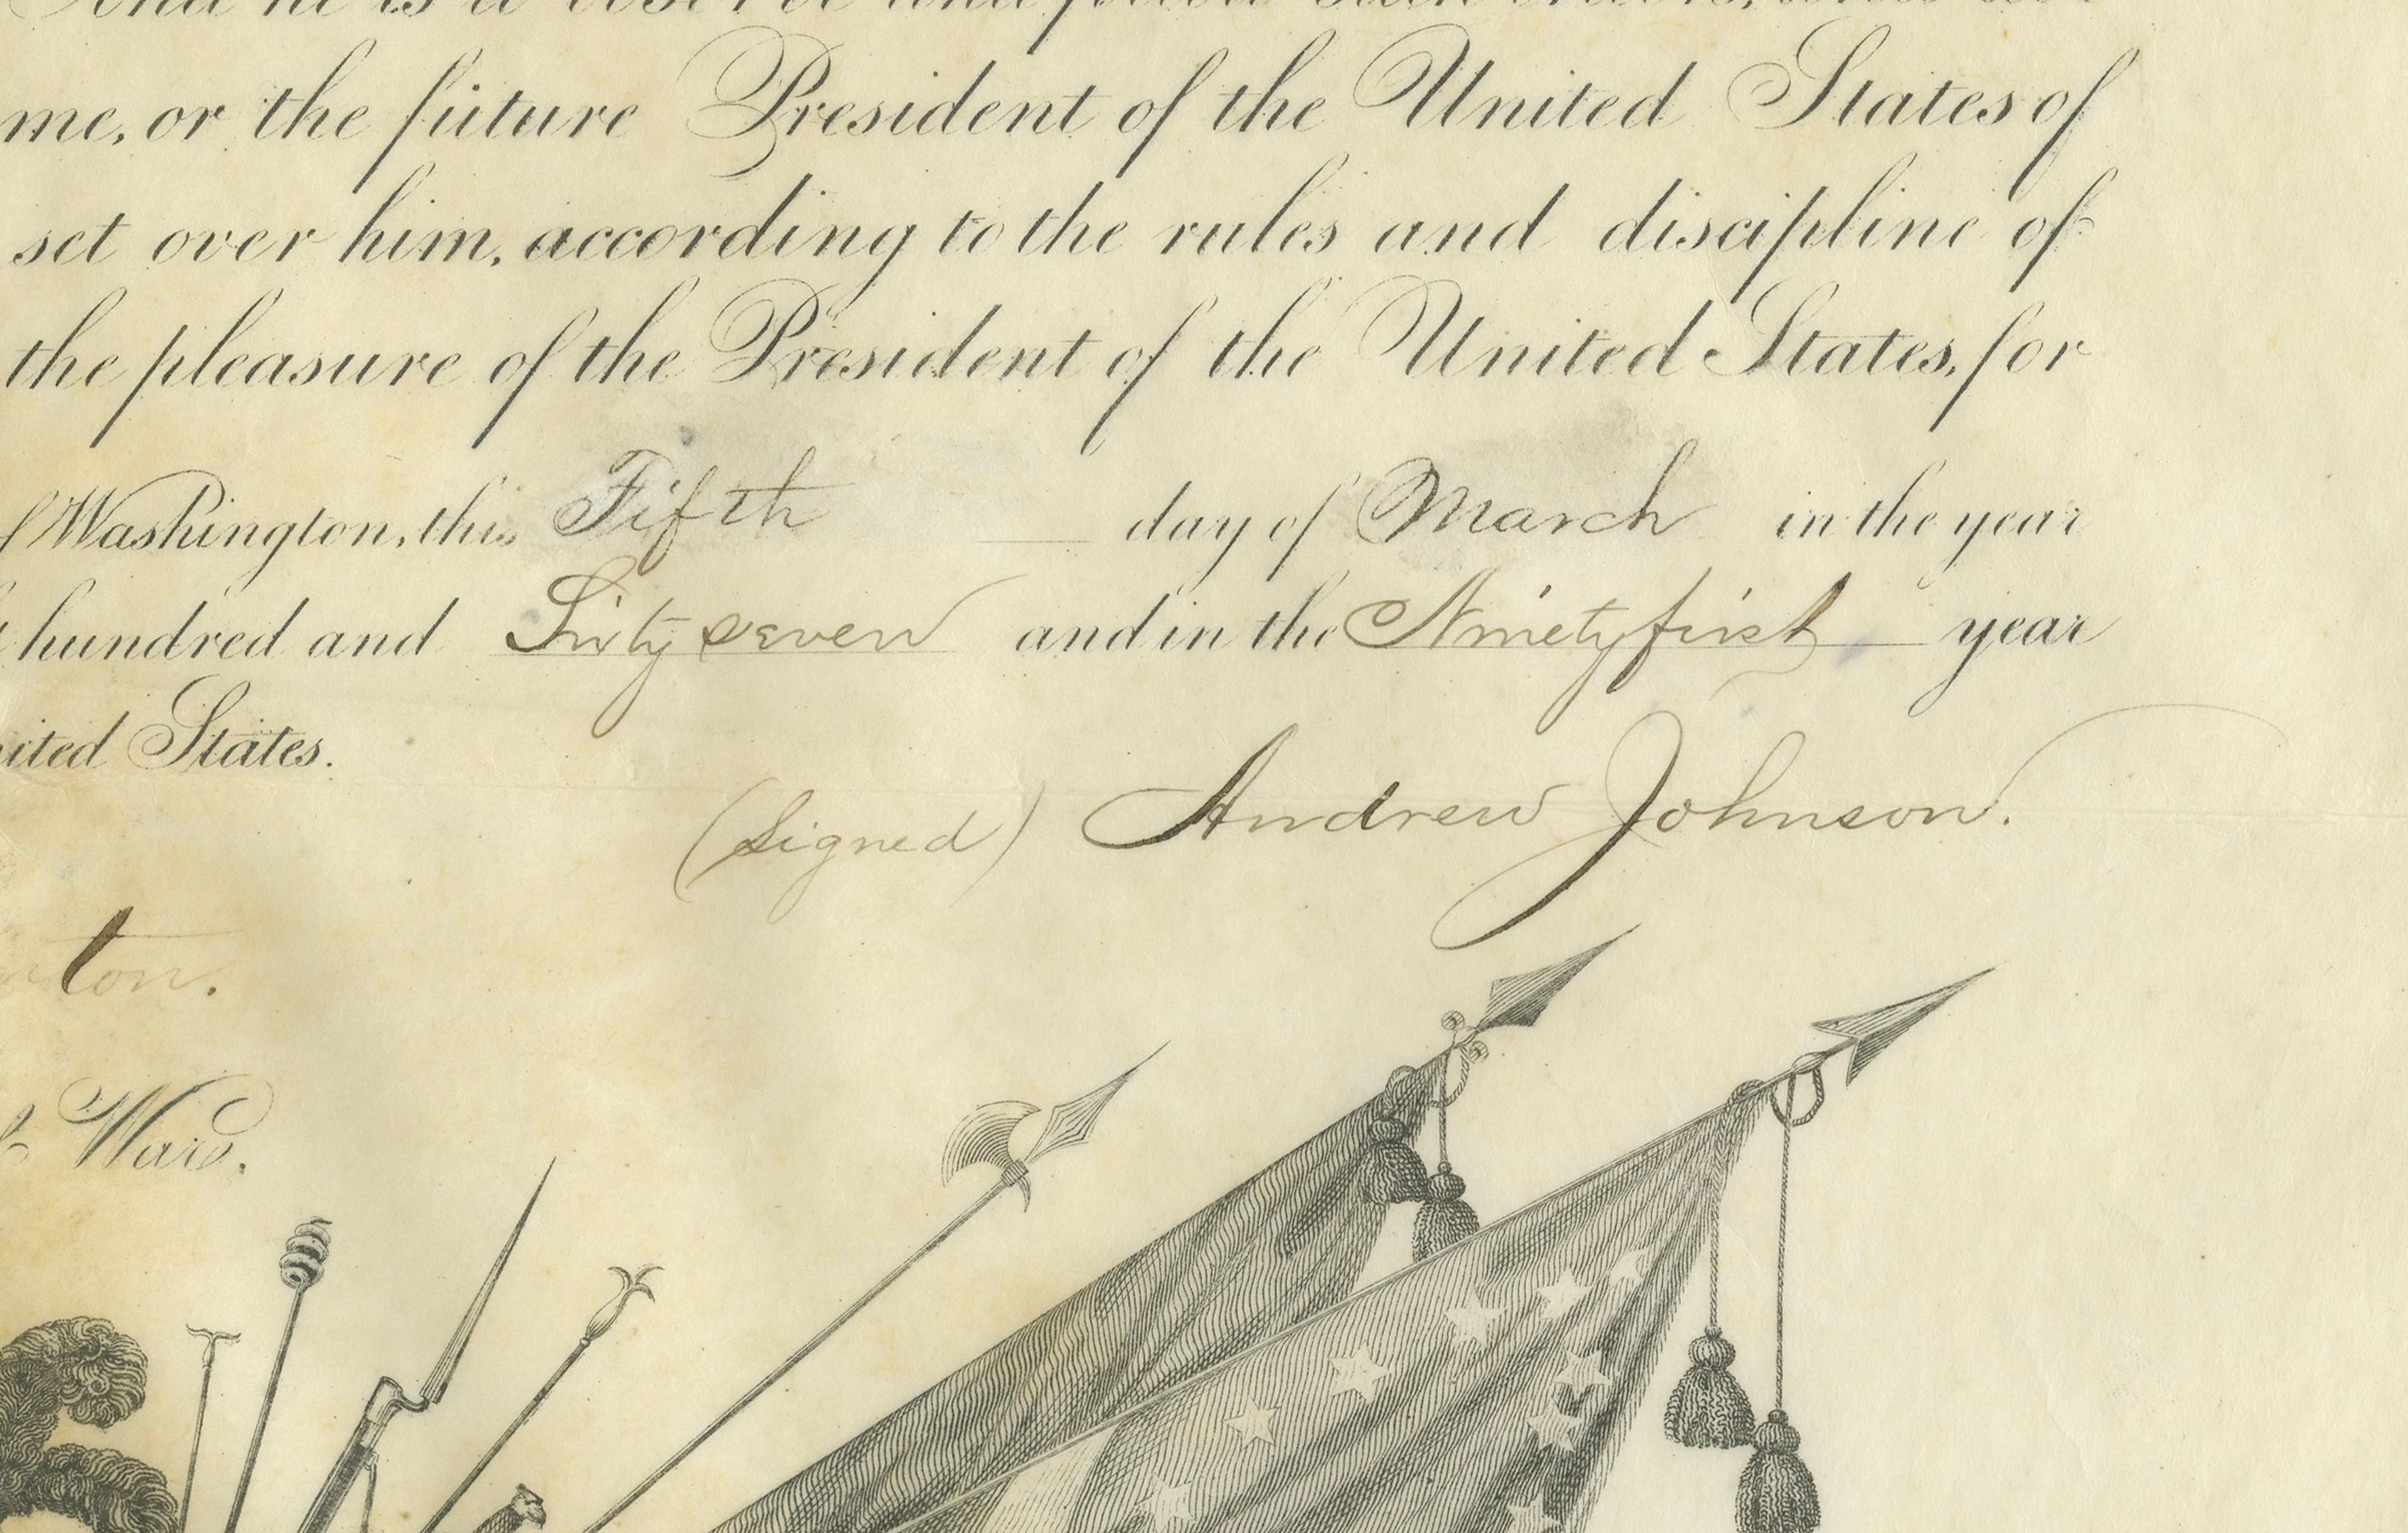 me, or the future President of the United States of
set over him, according to the rules and discipline of
the pleasure of the President of the United States, for
Washington, this Fifth day of March in the year
hundred and Sixty seven and in the Ninety first year
ited States.
(Signed) Andrew Johnson.
ton.
War.